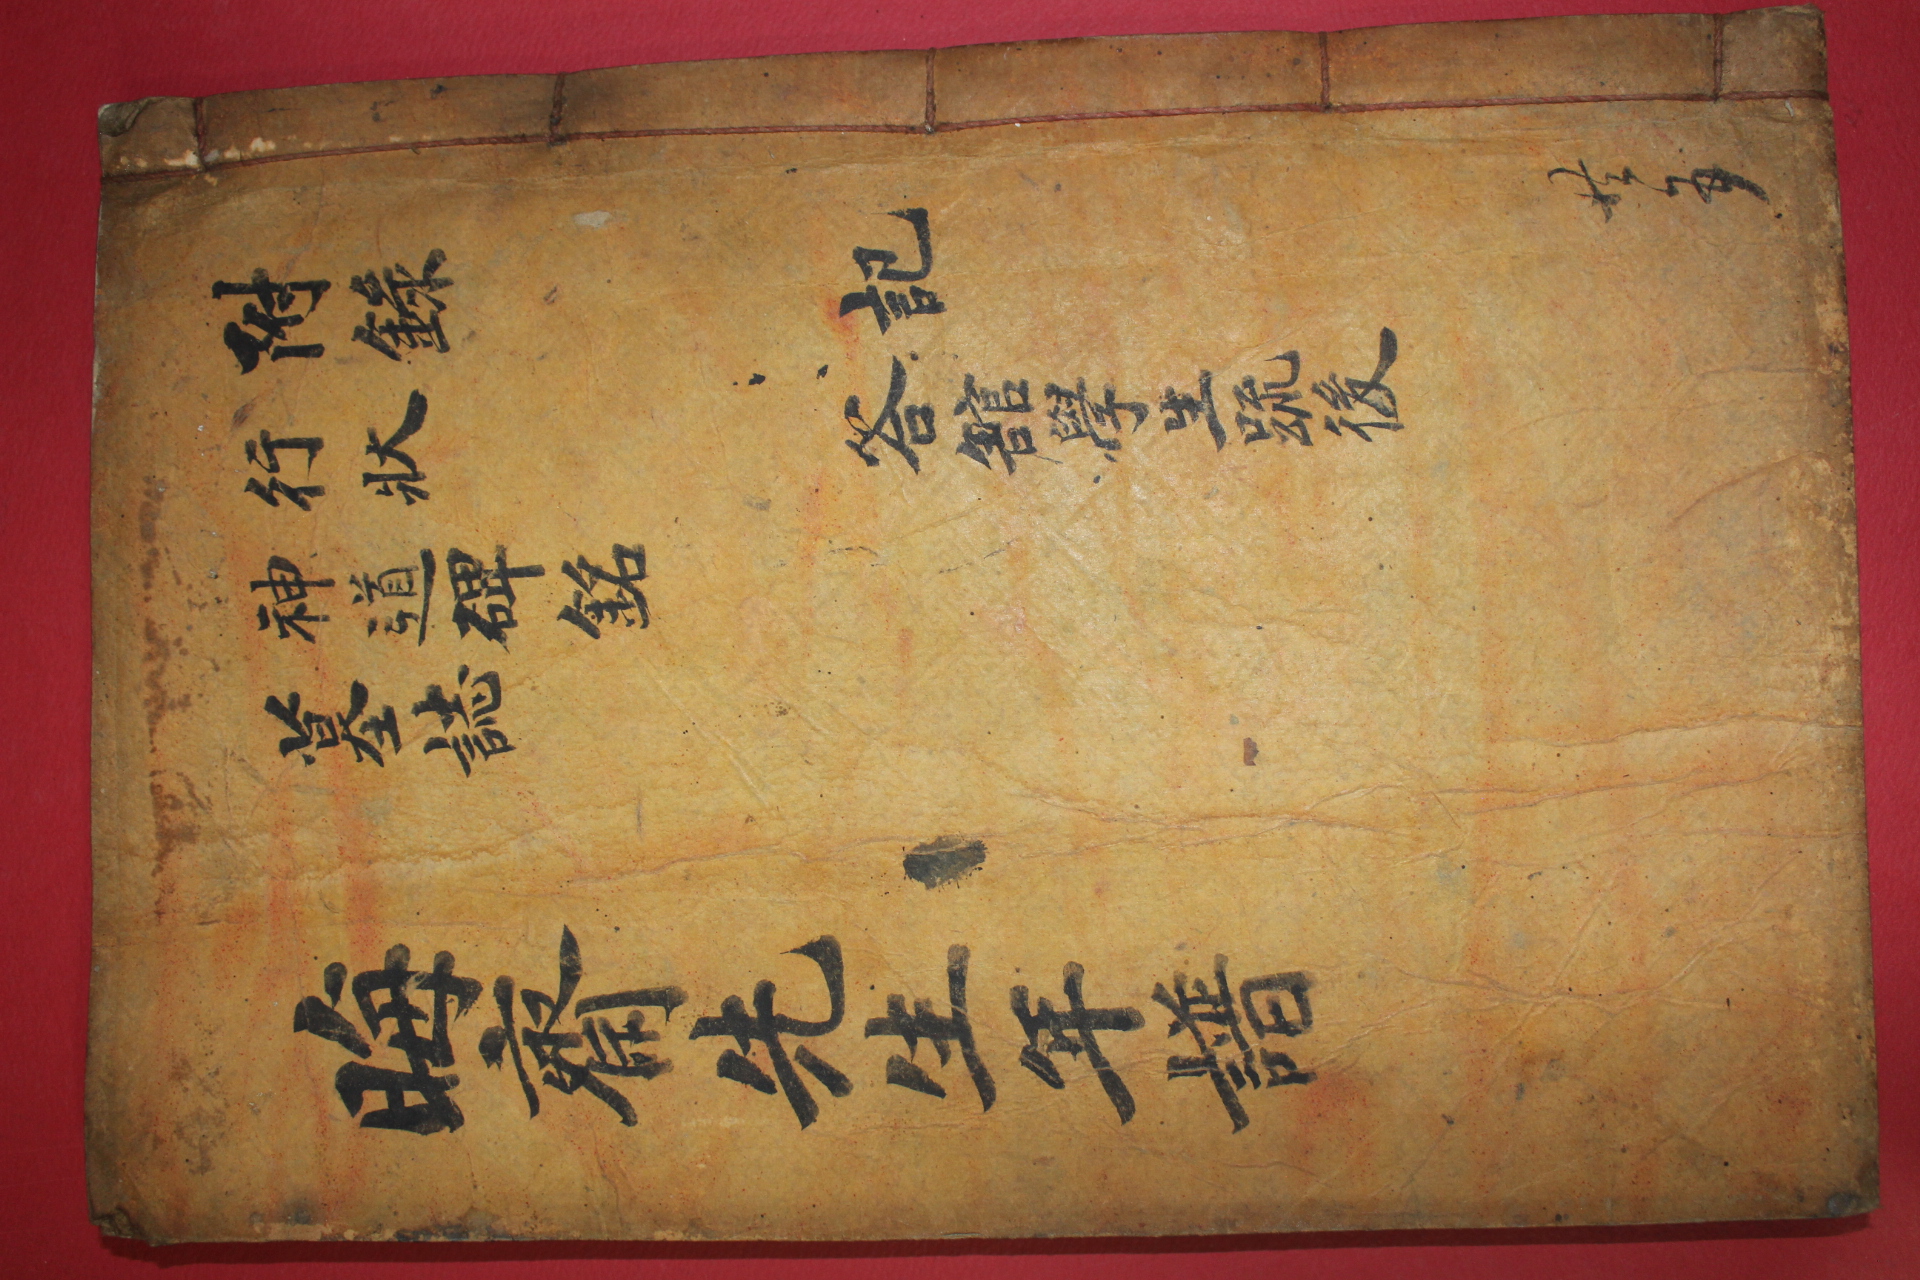 附錄
行狀
神道碑銘
墓誌
記
答舘學生疏後
晦齋先生年譜